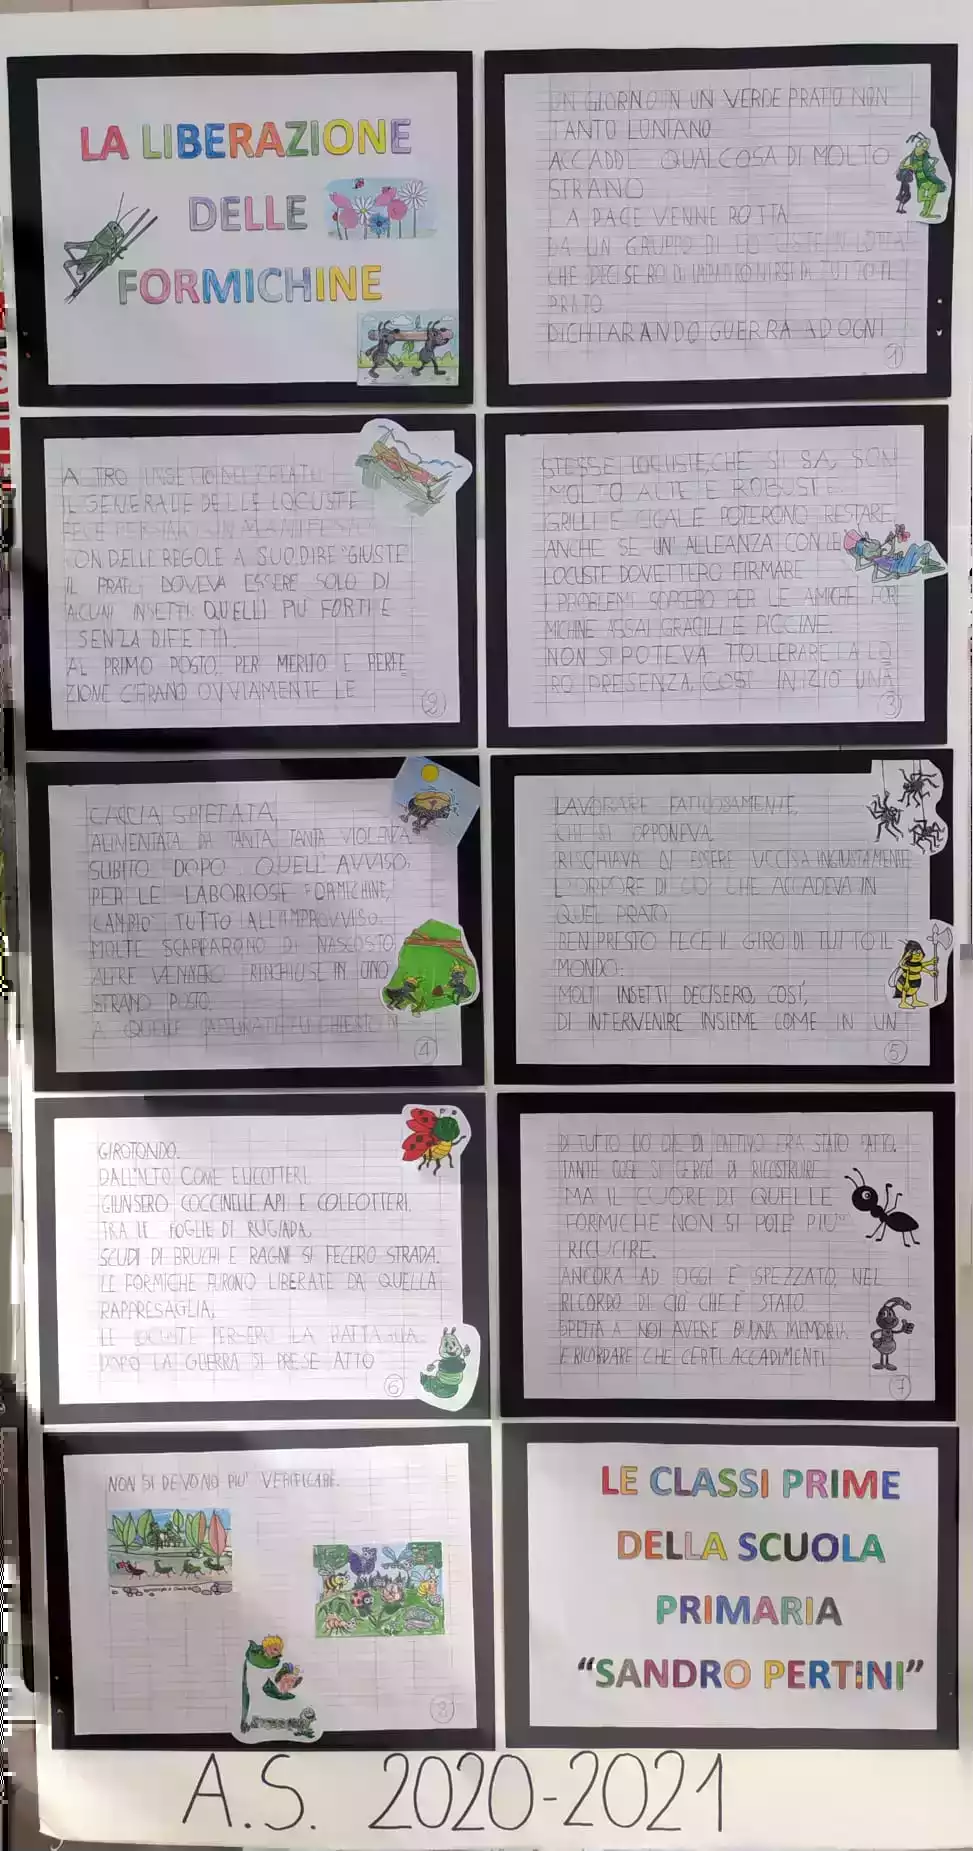 LA LIBERAZIONE
DELLE
FORMICHINE
UN GIORNO IN UN VERDE PRATO NON
TANTO LONTANO
ACCADDE QUALCOSA DI MOLTO
STRANO
LA PACE VENNE ROTTA
DA UN GRUPPO DI LOCUSTE IN LOTTA
CHE DECISERO DI IMPADRONIRSI DI TUTTO IL
PRATO
DICHIARANDO GUERRA AD OGNI
1
ALTRO INSETTO DEL CREATO
IL GENERALE DELLE LOCUSTE
FECE UN MANIFESTO
CON DELLE REGOLE A SUO DIRE "GIUSTE"
IL PRATO DOVEVA ESSERE SOLO DI
ALCUNI INSETTI: QUELLI PIÙ FORTI E
SENZA DIFETTI.
AL PRIMO POSTO, PER MERITO E PERFE
ZIONE C'ERANO OVVIAMENTE LE
2
STESSE LOCUSTE, CHE SI SA, SON
MOLTO ALTE E ROBUSTE.
GRILLI E CICALE POTERONO RESTARE
ANCHE SE UN' ALLEANZA CON LE
LOCUSTE DOVETTERO FIRMARE
I PROBLEMI SORSERO PER LE AMICHE FOR
MICHINE ASSAI GRACILI E PICCINE.
NON SI POTEVA TOLLERARE LA LO
RO PRESENZA, COSÌ INIZIÒ UNA
3
CACCIA SPIETATA,
ALIMENTATA DA TANTA TANTA VIOLENZA
SUBITO DOPO QUELL' AVVISO,
PER LE LABORIOSE FORMICHINE,
CAMBIO' TUTTO ALL'IMPROVVISO.
MOLTE SCAPPARONO DI NASCOSTO,
ALTRE VENNERO RINCHIUSE IN UNO
STRANO POSTO.
A QUELLE CATTURATE FU CHIESTO DI
4
LAVORARE FATICOSAMENTE,
CHI SI OPPONEVA
RISCHIAVA DI ESSERE UCCISA INGIUSTAMENTE
L'ORRORE DI CIO' CHE ACCADEVA IN
QUEL PRATO
BEN PRESTO FECE IL GIRO DI TUTTO IL
MONDO:
MOLTI INSETTI DECISERO, COSI',
DI INTERVENIRE INSIEME COME IN UN
5
GIROTONDO.
DALL'ALTO COME ELICOTTERI,
GIUNSERO COCCINELLE API E COLEOTTERI,
TRA LE FOGLIE DI RUGIADA,
SCUDI DI BRUCHI E RAGNI SI FECERO STRADA.
LE FORMICHE FURONO LIBERATE DA QUELLA
RAPPRESAGLIA,
LE LOCUSTE PERSERO LA BATTAGLIA.
DOPO LA GUERRA SI PRESE ATTO
6
DI TUTTO CIO' CHE DI CATTIVO ERA STATO FATTO.
TANTE COSE SI CERCÒ DI RICOSTRUIRE
MA IL CUORE DI QUELLE
FORMICHE NON SI POTE' PIU'
RICUCIRE.
ANCORA AD OGGI È SPEZZATO, NEL
RICORDO DI CIÒ CHE È STATO.
SPETTA A NOI AVERE BUONA MEMORIA
E RICORDARE CHE CERTI ACCADIMENTI
7
NON SI DEVONO PIU' VERIFICARE.
8
LE CLASSI PRIME
DELLA SCUOLA
PRIMARIA
"SANDRO PERTINI"
A.S. 2020-2021